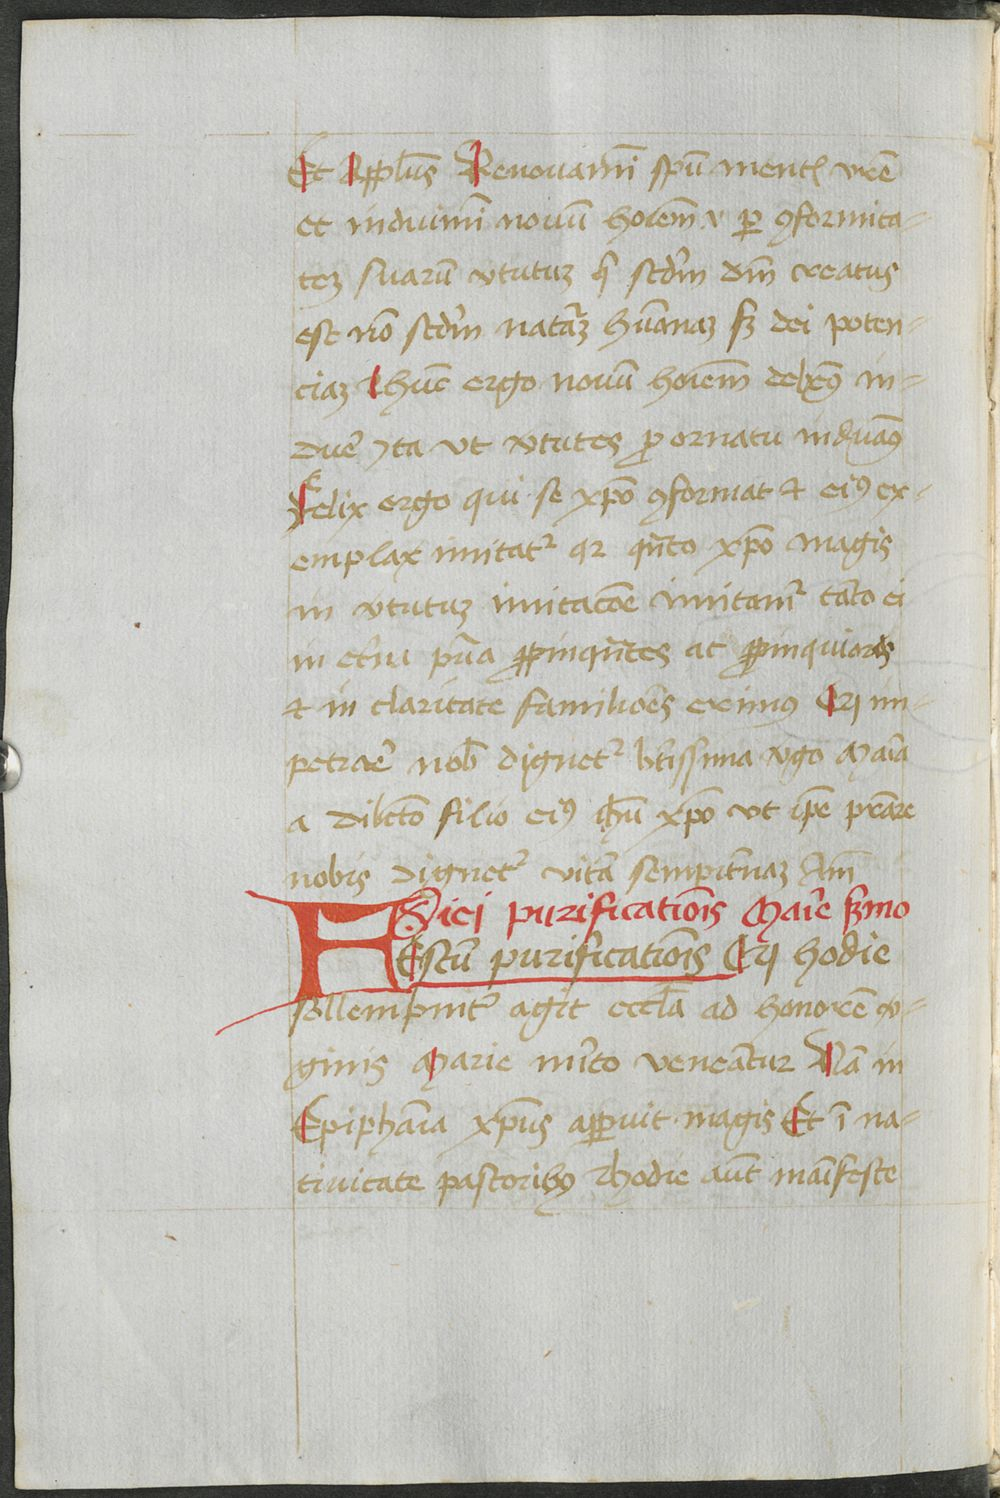 Et Appl̄us Renouamī spū mentꝭ vr̄e
et induimī nouū hoīem .i. ꝑ ꝯformita-
teꝫ suarū v̄tutuꝫ q̄ scd̄m dm̄ creatus
est nō scd̄m natāꝫ hūanaꝫ sꝫ dei poten-
ciaꝫ hūc ergo nouū hoīem debem⁹ in-
due᷑ yta vt v̄tutes ꝓ ornatu induam⁹
Felix ergo qui se xp̄o ꝯformat et ei⁹ ex-
emplar imitat᷑ qꝛ q̄nto xp̄o magis
in v̄tutuꝫ imitacōe imitam᷑ tāto ei
in et̄na pr̄ia ꝓpinq̄ntes ac ꝓpinquiores
et in claritate familiōes erimus Qd im-
petrar̄e nob̄ dignet᷑ bt̄issima v̄go Maīa
a dilc̄to filio ei⁹ ih̄u xp̄o vt ip̄e prare
nobis dignet᷑ vitā sempit̄naꝫ Am̄
Dici purificatiōis Maīe s̄mo
FEstū purificatiōis Qd hodie
sollempnit᷑ agit eccl̄a ad honorē v̄-
ginis Marie mīto veneātur Nā in
Epiphaīa xp̄us apparuit magis Et ī na-
tiuitate pastoribꝫ hodie aūt maīfeste